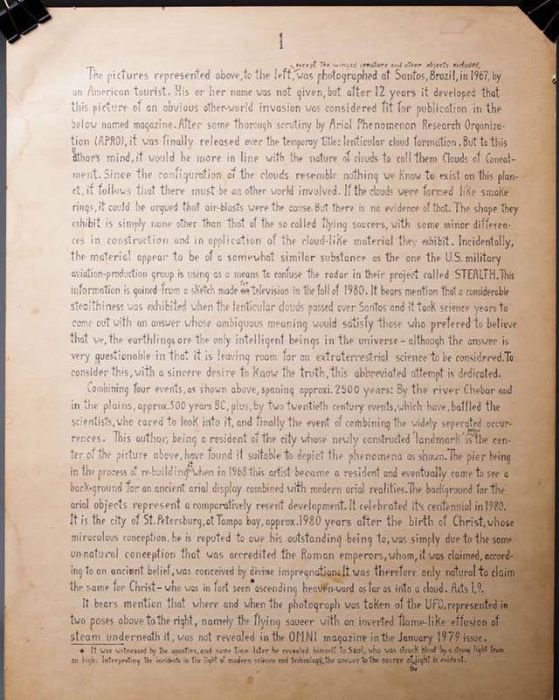 1
except the winged creature and other objects included,
The pictures represented above, to the left, was photographed at Santos, Brazil, in 1967, by
an American tourist. His or her name was not given, but after 12 years it developed that
this picture of an obvious other-world invasion was considered fit for publication in the
below named magazine. After some thorough scrutiny by Arial Phenomenon Research Organiza-
tion (APRO), it was finally released over the temporay title: lenticular cloud formation. But to this
athor's mind, it would be more in line with the nature of clouds to call them Clouds of Conceal-
ment. Since the configuration of the clouds resemble nothing we know to exist on this plan-
et, it follows that there must be an other world involved. If the clouds were formed like smoke
rings, it could be argued that air-blasts were the cause. But there is no evidence of that. The shape they
exhibit is simply none other than that of the so called flying saucers, with some minor differen-
ces in construction and in application of the cloud-like material they exhibit. Incidentally,
the material appear to be of a somewhat similar substance as the one the U.S. military
aviation-production group is using as a means to confuse the radar in their project called STEALTH. This
information is gained from a sketch made for television in the fall of 1980. It bears mention that a considerable
stealthiness was exhibited when the lenticular clouds passed over Santos and it took science years to
come out with an answer whose ambiguous meaning would satisfy those who prefered to believe
that we, the earthlings are the only intelligent beings in the universe - although the answer is
very questionable in that it is leaving room for an extraterrestrial science to be considered. To
consider this, with a sincere desire to know the truth, this abbreviated attempt is dedicated.
Combining four events, as shown above, spaning approxi. 2500 years: By the river Chebar and
in the plains, approx. 500 years BC, plus, by two twentieth century events, which have, baffled the
scientists, who cared to look into it, and finally the event of combining the widely seperated occur-
rences. This author, being a resident of the city whose newly constructed 'landmark' is the cen-
ter of the picture above, have found it suitable to depict the phenomena as shown. The pier being
in the process of re-building when in 1968 this artist became a resident and eventually came to see a
back-ground for an ancient arial display combined with modern arial realities. The background for the
arial objects represent a comparatively resent development. It celebrated its centennial in 1980.
It is the city of St. Petersburg, at Tampa bay, approx. 1980 years after the birth of Christ, whose
miraculous conception, he is reputed to owe his outstanding being to, was simply due to the same
un-natural conception that was accredited the Roman emperors, whom, it was claimed, accord-
ing to an ancient belief, was conceived by divine impregnations. It was therefore only natural to claim
the same for Christ - who was in fact seen * ascending heaven-ward as far as into a cloud. Acts 1,9.
It bears mention that where and when the photograph was taken of the UFO, represented in
two poses above to the right, namely the flying saucer with an inverted flame-like effusion of
steam underneath it, was not revealed in the OMNI magazine in the January 1979 issue.
* It was witnessed by the apostles, and some time later he revealed himself to Saul, who was struck blind by a strong light from
on high. Interpreting the incidents in the light of modern science and technology, the answer to the source of the light is evident.